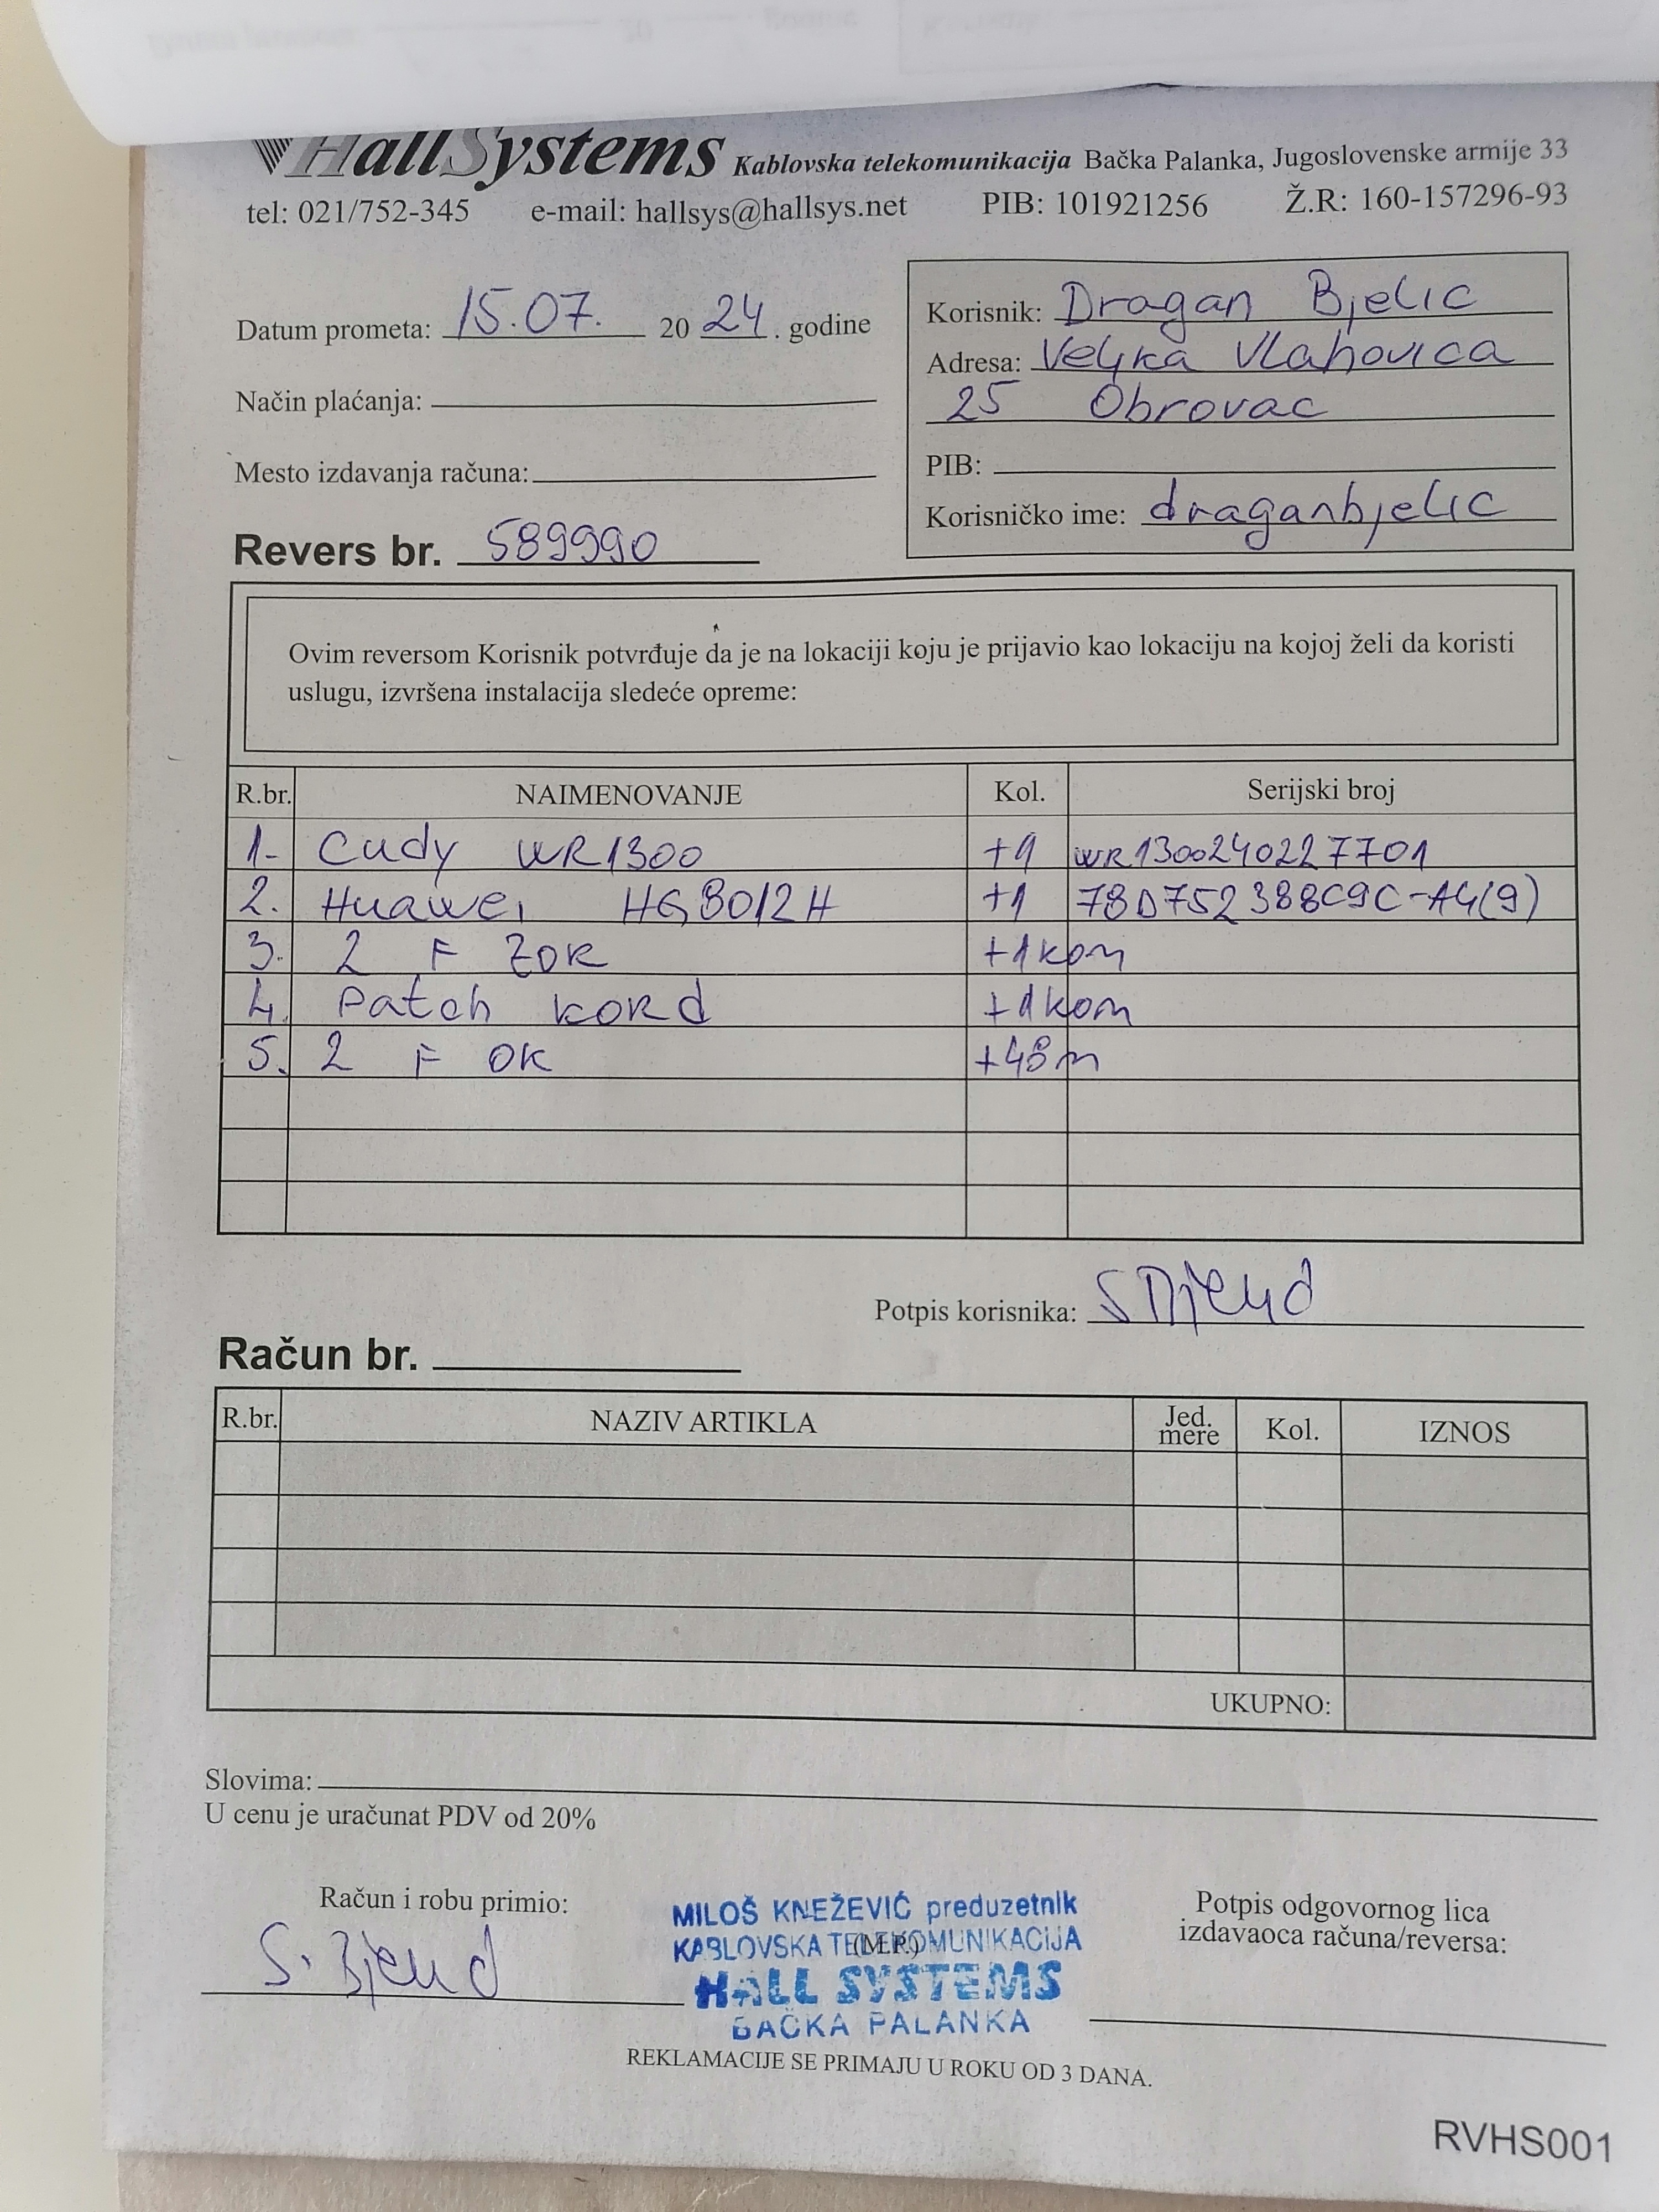 HallSystems Kablovska telekomunikacija Bačka Palanka, Jugoslovenske armije 33
tel: 021/752-345 e-mail: hallsys@hallsys.net PIB: 101921256 Ž.R: 160-157296-93
Datum prometa: 15.07. 2024. godine
Način plaćanja:
Mesto izdavanja računa:
Revers br. 589990
Korisnik: Dragan Bjelic
Adresa: Veljka Vlahovica
25 Obrovac
PIB:
Korisničko ime: draganbjelic
Ovim reversom Korisnik potvrđuje da je na lokaciji koju je prijavio kao lokaciju na kojoj želi da koristi
uslugu, izvršena instalacija sledeće opreme:
R.br. NAIMENOVANJE Kol. Serijski broj
1. Cudy WR1300 +1 WR1300240227701
2. Huawei HG8012H +1 78D752388C9C-A4(9)
3. 2 F ZOK +1kom
4. Patch kord +1kom
5. 2 F OK +48m
Potpis korisnika:
Račun br.
R.br. NAZIV ARTIKLA Jed. mere Kol. IZNOS
UKUPNO:
Slovima:
U cenu je uračunat PDV od 20%
Račun i robu primio:
MILOŠ KNEŽEVIĆ preduzetnik
KABLOVSKA TELEKOMUNIKACIJA
(M.P.)
HALL SYSTEMS
BAČKA PALANKA
Potpis odgovornog lica
izdavaoca računa/reversa:
REKLAMACIJE SE PRIMAJU U ROKU OD 3 DANA.
RVHS001